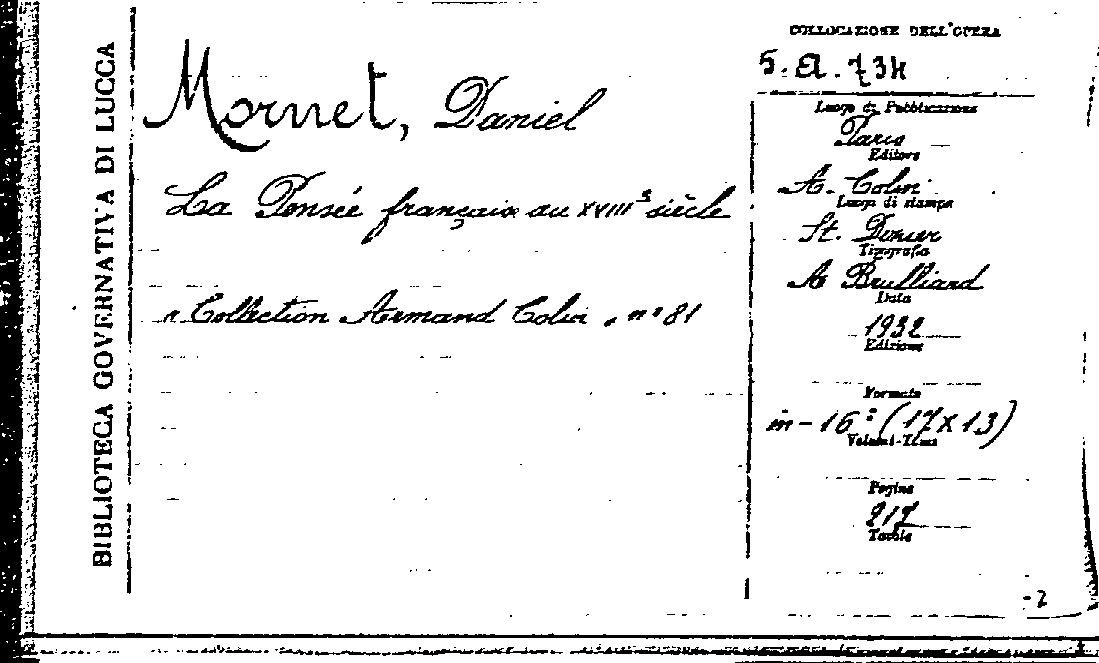 BIBLIOTECA GOVERNATIVA DI LUCCA
Mornet, Daniel
La Pensée française au XVIIIe siècle
"Collection Armand Colin, n° 81
COLLOCAZIONE DELL'OPERA
Luogo di Pubblicazione
Paris
Editore
A. Colin
Luogo di stampa
St. Denis
Tipografia
A Brulliard
Data
1932
Edizione
Formato
in-16° (17x13)
Volumi-Tomi
Pagine
217
Tavole
-2